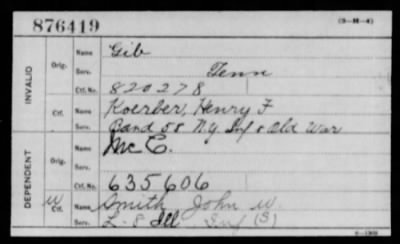 876419
(3-M-4)
INVALID
Orig.
Name Gib
Serv. Tenn
Ctf. No. 820278
Ctf.
Name Koerber, Henry F
Serv. Band 58 N.Y. Inf & Old War
DEPENDENT
Orig.
Name McC.
Serv.
Ctf. No. 635606
W Ctf.
Name Smith John W.
Serv. Ill Inf (S)